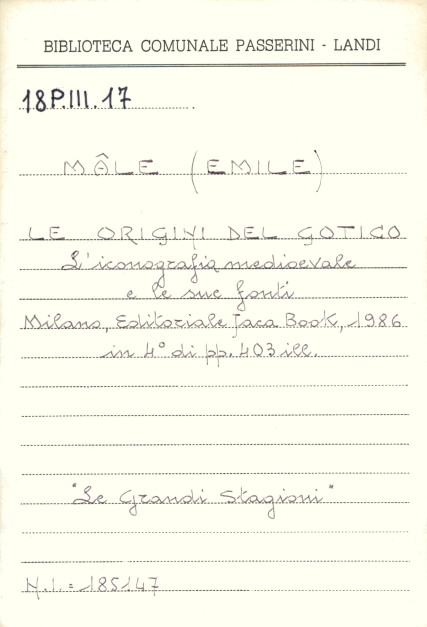 BIBLIOTECA COMUNALE PASSERINI - LANDI
18P.III.17
MÂLE (EMILE)
LE ORIGINI DEL GOTICO
L'iconografia medioevale
e le sue fonti
Milano, Editoriale Jaca Book, 1986
in 4° di pp. 403 ill.
"Le Grandi Stagioni"
N.I. = 185147